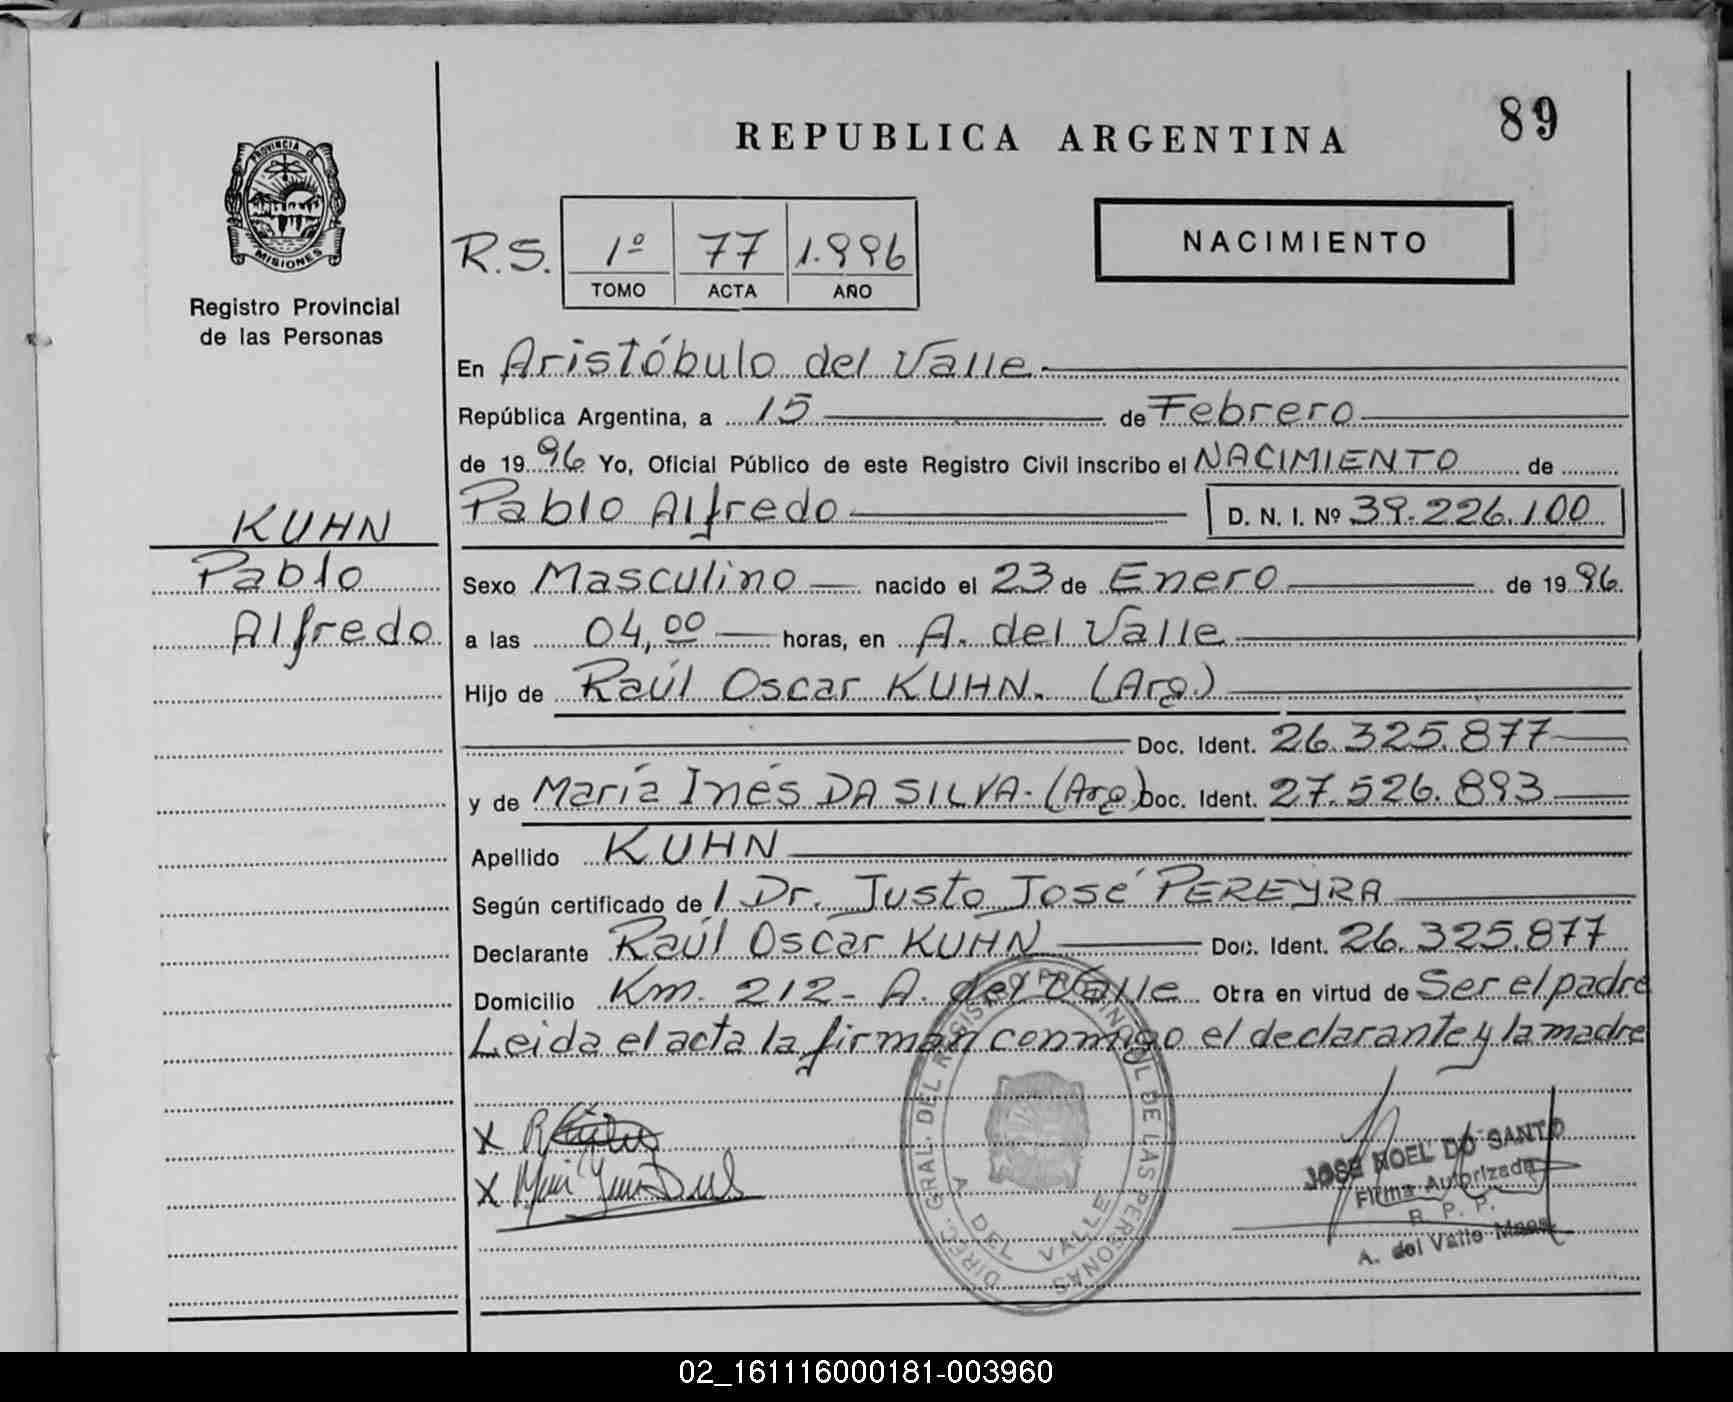 REPUBLICA ARGENTINA
89
PROVINCIA DE
MISIONES
Registro Provincial
de las Personas
R.S.
1º 77 1.996
TOMO ACTA AÑO
NACIMIENTO
En Aristóbulo del Valle
República Argentina, a 15 de Febrero
de 1996 Yo, Oficial Público de este Registro Civil inscribo el NACIMIENTO de
Pablo Alfredo D. N. I. Nº 39.226.100
KUHN
Pablo
Alfredo
Sexo Masculino nacido el 23 de Enero de 1996.
a las 04,00 horas, en A. del Valle
Hijo de Raúl Oscar KUHN. (Arg.)
Doc. Ident. 26.325.877
y de María Inés DA SILVA. (Arg) Doc. Ident. 27.526.893
Apellido KUHN
Según certificado de / Dr. Justo José PEREYRA
Declarante Raúl Oscar KUHN Doc. Ident. 26.325.877
Domicilio Km. 212 - A. del Valle Obra en virtud de Ser el padre
Leida el acta la firman conmigo el declarante y la madre
X
X
DIREC. GRAL. DEL REGISTRO PROVINCIAL DE LAS PERSONAS
A DEL VALLE
JOSE NOEL DO SANTO
Firma Autorizada
R. P. P.
A. del Valle Mnes.
02_161116000181-003960